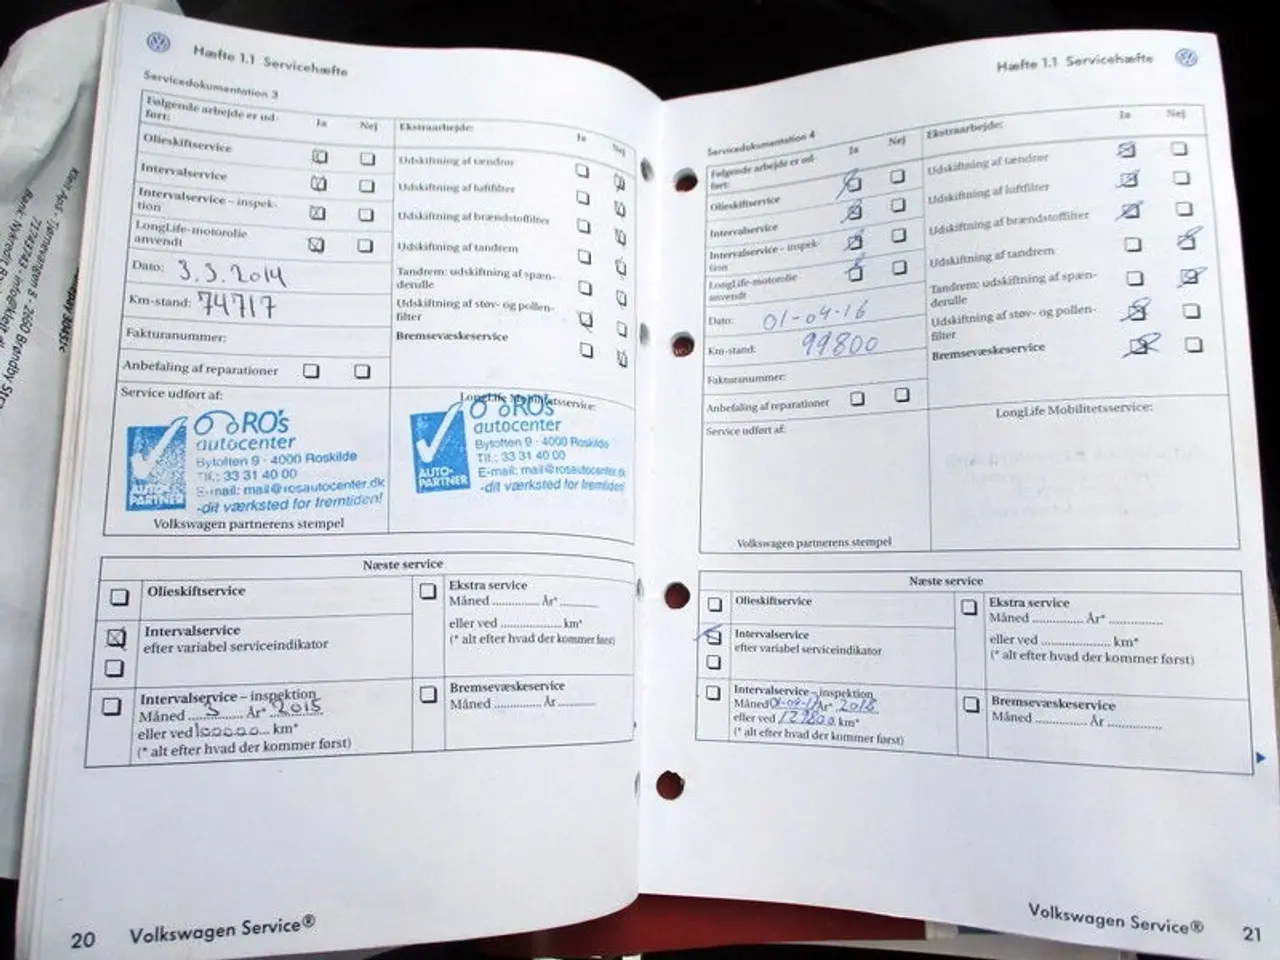 Hæfte 1.1 Servicehæfte
Servicedokumentation 3
Følgende arbejde er ud-
ført:
Ja
Nej
Olieskiftservice
Intervalservice
Intervalservice – inspek-
tion
LongLife-motorolie
anvendt
Dato: 3.3.2014
Km-stand: 74717
Fakturanummer:
Anbefaling af reparationer
Service udført af:
Ekstraarbejde:
Ja
Nej
Udskiftning af tændrør
Udskiftning af luftfilter
Udskiftning af brændstoffilter
Udskiftning af tandrem
Tandrem: udskiftning af spæn-
derulle
Udskiftning af støv- og pollen-
filter
Bremsevæskeservice
LongLife Mobilitetsservice:
RO's
autocenter
Bytoften 9 · 4000 Roskilde
Tlf.: 33 31 40 00
E-mail: mail@rosautocenter.dk
-dit værksted for fremtiden!
AUTO-
PARTNER
Volkswagen partnerens stempel
RO's
autocenter
Bytoften 9 · 4000 Roskilde
Tlf.: 33 31 40 00
E-mail: mail@rosautocenter.dk
-dit værksted for fremtiden!
AUTO-
PARTNER
Næste service
Olieskiftservice
Intervalservice
efter variabel serviceindikator
Intervalservice – inspektion
Måned 3 År* 2015
eller ved 100000 km*
(* alt efter hvad der kommer først)
Ekstra service
Måned ............. År* ...........
eller ved .................... km*
(* alt efter hvad der kommer først)
Bremsevæskeservice
Måned ............. År ...........
20 Volkswagen Service®
Hæfte 1.1 Servicehæfte
Servicedokumentation 4
Følgende arbejde er ud-
ført:
Ja
Nej
Olieskiftservice
Intervalservice
Intervalservice – inspek-
tion
LongLife-motorolie
anvendt
Dato: 01-04-16
Km-stand: 99800
Fakturanummer:
Anbefaling af reparationer
Service udført af:
Volkswagen partnerens stempel
Ekstraarbejde:
Ja
Nej
Udskiftning af tændrør
Udskiftning af luftfilter
Udskiftning af brændstoffilter
Udskiftning af tandrem
Tandrem: udskiftning af spæn-
derulle
Udskiftning af støv- og pollen-
filter
Bremsevæskeservice
LongLife Mobilitetsservice:
Næste service
Olieskiftservice
Intervalservice
efter variabel serviceindikator
Intervalservice – inspektion
Måned År* 2018
eller ved 129800 km*
(* alt efter hvad der kommer først)
Ekstra service
Måned ............. År* .............
eller ved ........................ km*
(* alt efter hvad der kommer først)
Bremsevæskeservice
Måned ............. År .............
Volkswagen Service® 21